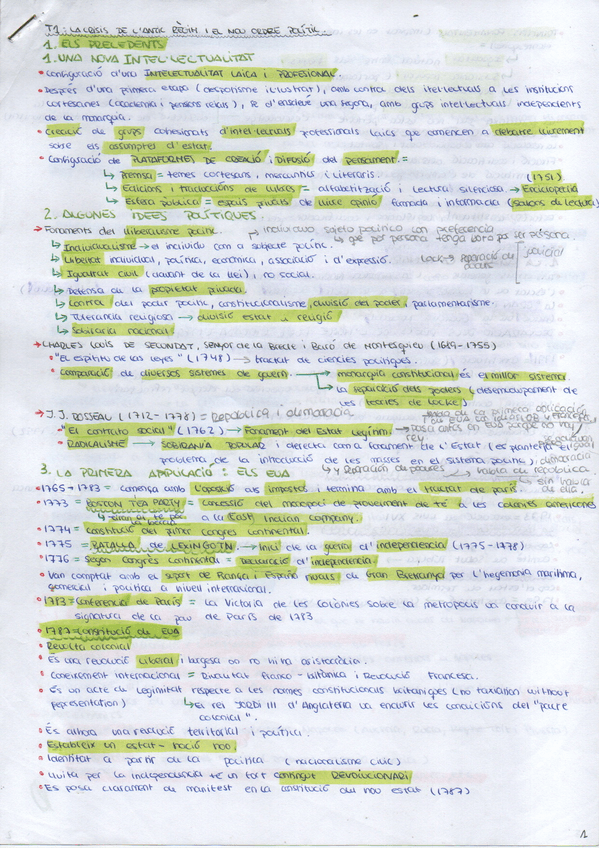 T1: LA CRISIS DE L'ANTIC RÈGIM I EL NOU ORDRE POLÍTIC.
1. ELS PRECEDENTS
1. UNA NOVA INTEL·LECTUALITAT
• Configuració d'una INTELECTUALITAT LAICA I PROFESIONAL.
• Després d'una primera etapa (despotisme il·lustrat), amb control dels intel·lectuals a les institucions
cortesanes (academia i pensions reials), es d'enseieve una segona, amb grups intel·lectuals independents
de la monarquia.
• Creació de grups cohesionats d'intel·lectuals professionals laics que comencen a debatre lliurement
sobre els assumptes d'estat.
• Configuració de PLATAFORMES DE CREACIÓ I DIFUSIÓ del pensament =
↳ Prensa = temes cortesans, mercantils i literaris. (1751)
↳ Edicions i traduccions de llibres = alfabetització i lectura silenciosa → Enciclopedia
↳ Esfera pública = espais privats de lliure opinió formada i informada (Salons de lectura)
2. ALGUNES IDEES POLÍTIQUES.
→ Fonaments del liberalisme polític. → individuo, sujeto político con preferencia
↳ que por persona tenga voto por ser persona.
↳ Individualisme → el individu com a subjecte polític.
↳ Llibertat individual, política, económica, associació i d'expressió. Lock → separació de
poders judicial
↳ Igualtat civil (davant de la llei), no social.
↳ Defensa de la propietat privada
↳ Control del poder polític, constitucionalisme, divisió del poder, parlamentarisme.
↳ Tolerancia religiosa → divisió estat i religió
↳ Sobirania nacional
→ CHARLES LOUIS DE SECUNDAT, senyor de la Brede i Baró de Montesquieu (1689-1755)
• "El espíritu de las leyes" (1748) → tractat de ciencies polítiques.
• Comparació de diversos sistemes de govern → monarquia constitucional és el millor sistema
↳ la separació dels poders (desenvolupament de
les teories de Locke)
→ J.J. ROSSEAU (1712-1778) = República i dimonacia
• "El contrato social" (1762) → Fonament del Estat legítim
• RADICALISME → SOBIRANIA POPULAR i directa com a fonament de l'Estat (es planteja el
problema de la introducció de les masses en el sistema polític)
3. LA PRIMERA APLICACIÓ: ELS EUA ↳ y separación de poderes → habla de república
sin habla
de eua.
• 1765-1783 = comença amb l'oposició als impostos i termina amb el tractat de parís.
• 1773 = BOSTON TEA PARTY = concessió del monopoli de proveïment de té a les colonies americanes
a la East Indian Company.
• 1774 = constitució del primer Congrés continental.
• 1775 = BATALLA de LEXINGTN → inici de la guerra d'independencia (1775-1778)
• 1776 = Segon Congrés continental = declaració d'independencia.
• Van comptat amb el suport de França i España rivals de Gran Bretranya per l'hegemonia marítima,
comercial i política a nivell internacional.
• 1783 = Conferencia de Parìs = la Victoria de les Colònies sobre la metropolis va conduir a la
signatura de la pau de París de 1783
• 1787 = Constitució de EUA
• Revolta colonial
• És una revolució liberal i burgesa on no hi ha aristocràcia.
• Coneixement internacional = Rivalitat Franco-britànica i Revolució Francesa.
• És un acte de legimitat respecte a les normes constitucionals britaniques (no taxation without
representation) ↳ El rei Jordi III d'Anglaterra va endurir les condicions del "pacte
colonial".
• És alhora una revolució territorial i política.
• Estableix un estat-nació nou.
• Identitat a partir de la política (nacionalisme civic)
• Lluita per la independencia té un fort contingut REVOLUCIONARI
• Es posa clarament de manifest en la constitució del nou estat (1787)
1